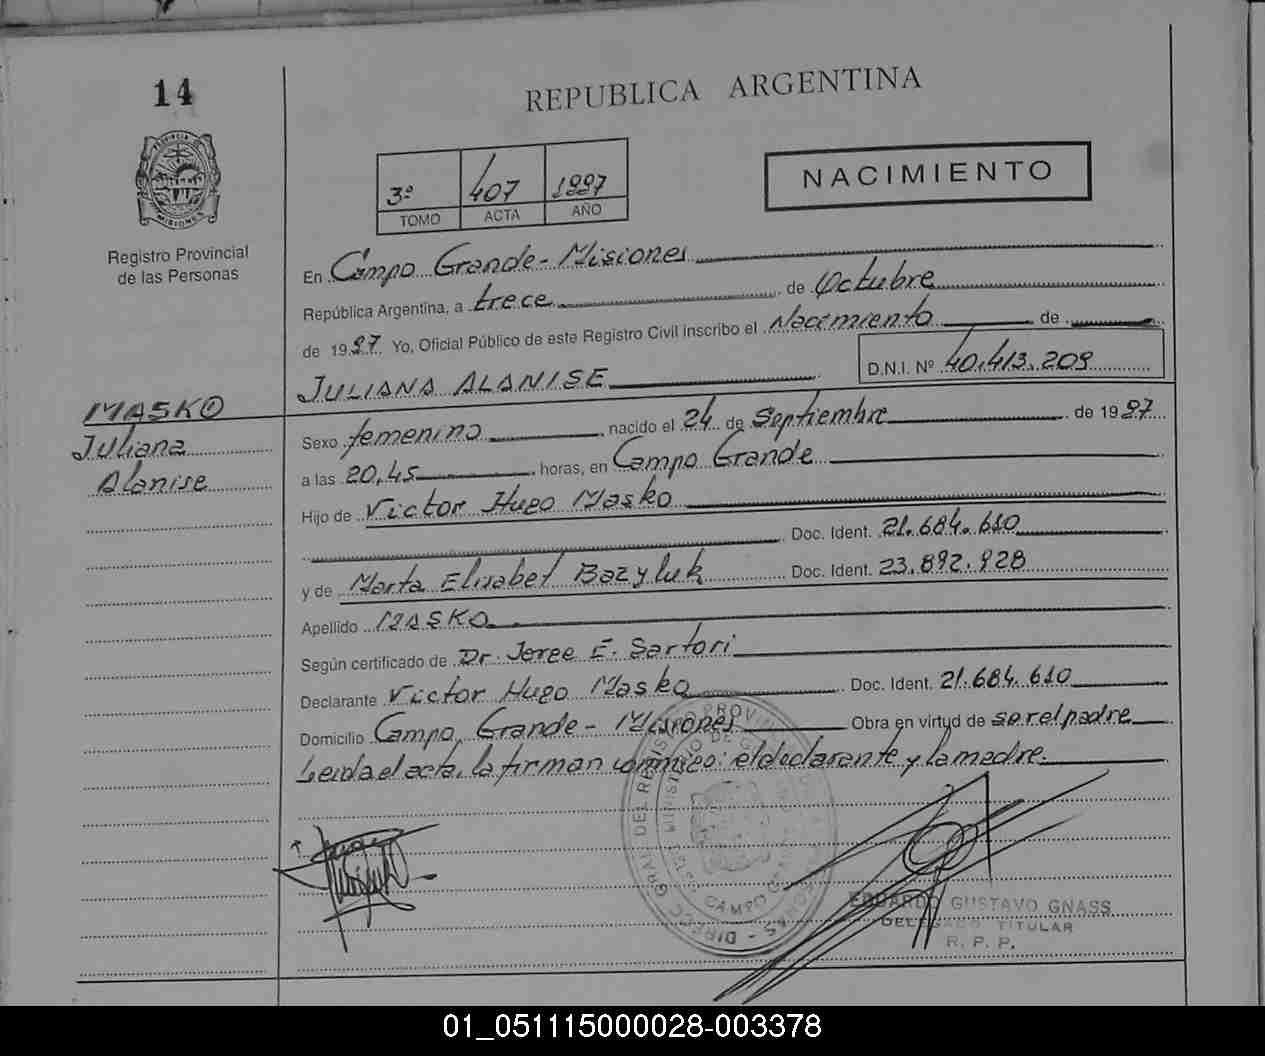 14
REPUBLICA ARGENTINA
PROVINCIA DE
MISIONES
Registro Provincial
de las Personas
3º 407 1997
TOMO ACTA AÑO
NACIMIENTO
En Campo Grande - Misiones
República Argentina, a trece de Octubre
de 1997 Yo, Oficial Público de este Registro Civil inscribo el Nacimiento de
JULIANA ALANISE D.N.I. Nº 40.413.209
MASKO
Juliana
Alanise
Sexo femenino nacido el 24 de Septiembre de 1997
a las 20,45 horas, en Campo Grande
Hijo de Victor Hugo Masko
Doc. Ident. 21.684.610
y de Marta Elisabet Bazyluk Doc. Ident. 23.892.928
Apellido MASKO
Según certificado de Dr. Jorge E. Sartori
Declarante Victor Hugo Masko Doc. Ident. 21.684.610
Domicilio Campo Grande - Misiones Obra en virtud de ser el padre
Leida el acta, la firman conmigo: el declarante y la madre.
EDUARDO GUSTAVO GNASS
DELEGADO TITULAR
R. P. P.
01_051115000028-003378